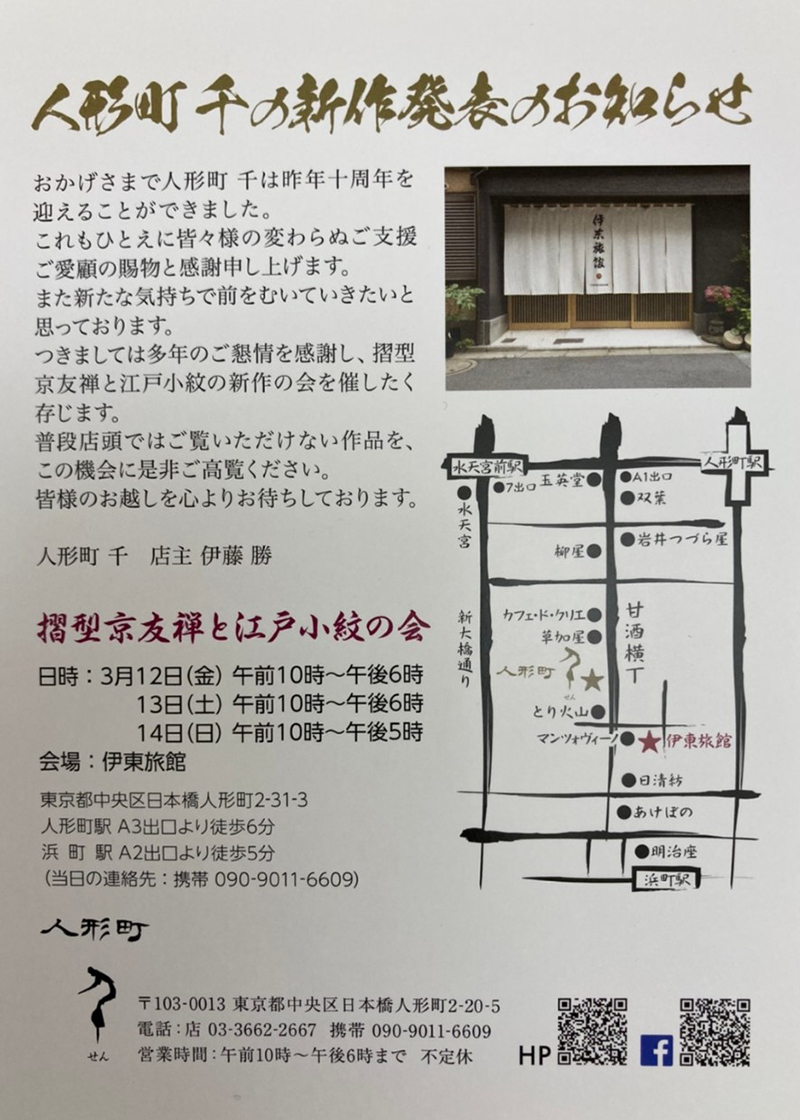 人形町 千の新作発表のお知らせ
おかげさまで人形町 千は昨年十周年を
迎えることができました。
これもひとえに皆々様の変わらぬご支援
ご愛顧の賜物と感謝申し上げます。
また新たな気持ちで前をむいていきたいと
思っております。
つきましては多年のご懇情を感謝し、摺型
京友禅と江戸小紋の新作の会を催したく
存じます。
普段店頭ではご覧いただけない作品を、
この機会に是非ご高覧ください。
皆様のお越しを心よりお待ちしております。
人形町 千　店主 伊藤 勝
摺型京友禅と江戸小紋の会
日時：3月12日(金) 午前10時〜午後6時
13日(土) 午前10時〜午後6時
14日(日) 午前10時〜午後5時
会場：伊東旅館
東京都中央区日本橋人形町2-31-3
人形町駅 A3出口より徒歩6分
浜 町 駅 A2出口より徒歩5分
(当日の連絡先：携帯 090-9011-6609)
伊東旅館
水天宮前駅
人形町駅
7出口
玉英堂
A1出口
水天宮
双葉
柳屋
岩井つづら屋
新大橋通り
カフェ・ド・クリエ
草加屋
甘酒横丁
人形町
せん
とり火山
マンツォヴィーノ
伊東旅館
日清紡
あけぼの
明治座
浜町駅
人形町
せん
〒103-0013 東京都中央区日本橋人形町2-20-5
電話：店 03-3662-2667 携帯 090-9011-6609
営業時間：午前10時〜午後6時まで 不定休
HP
f